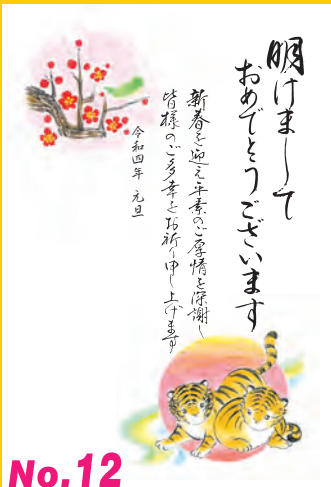 明けまして
おめでとうございます
新春を迎え平素のご厚情を深謝し
皆様のご多幸をお祈り申し上げます
令和四年 元旦
No.12